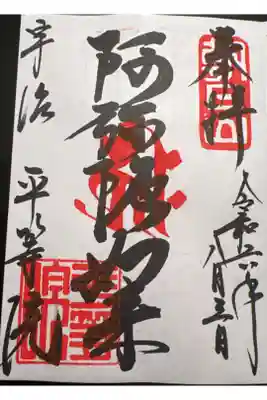 奉拝
令和六年八月三日
阿弥陀如来
宇治 平等院